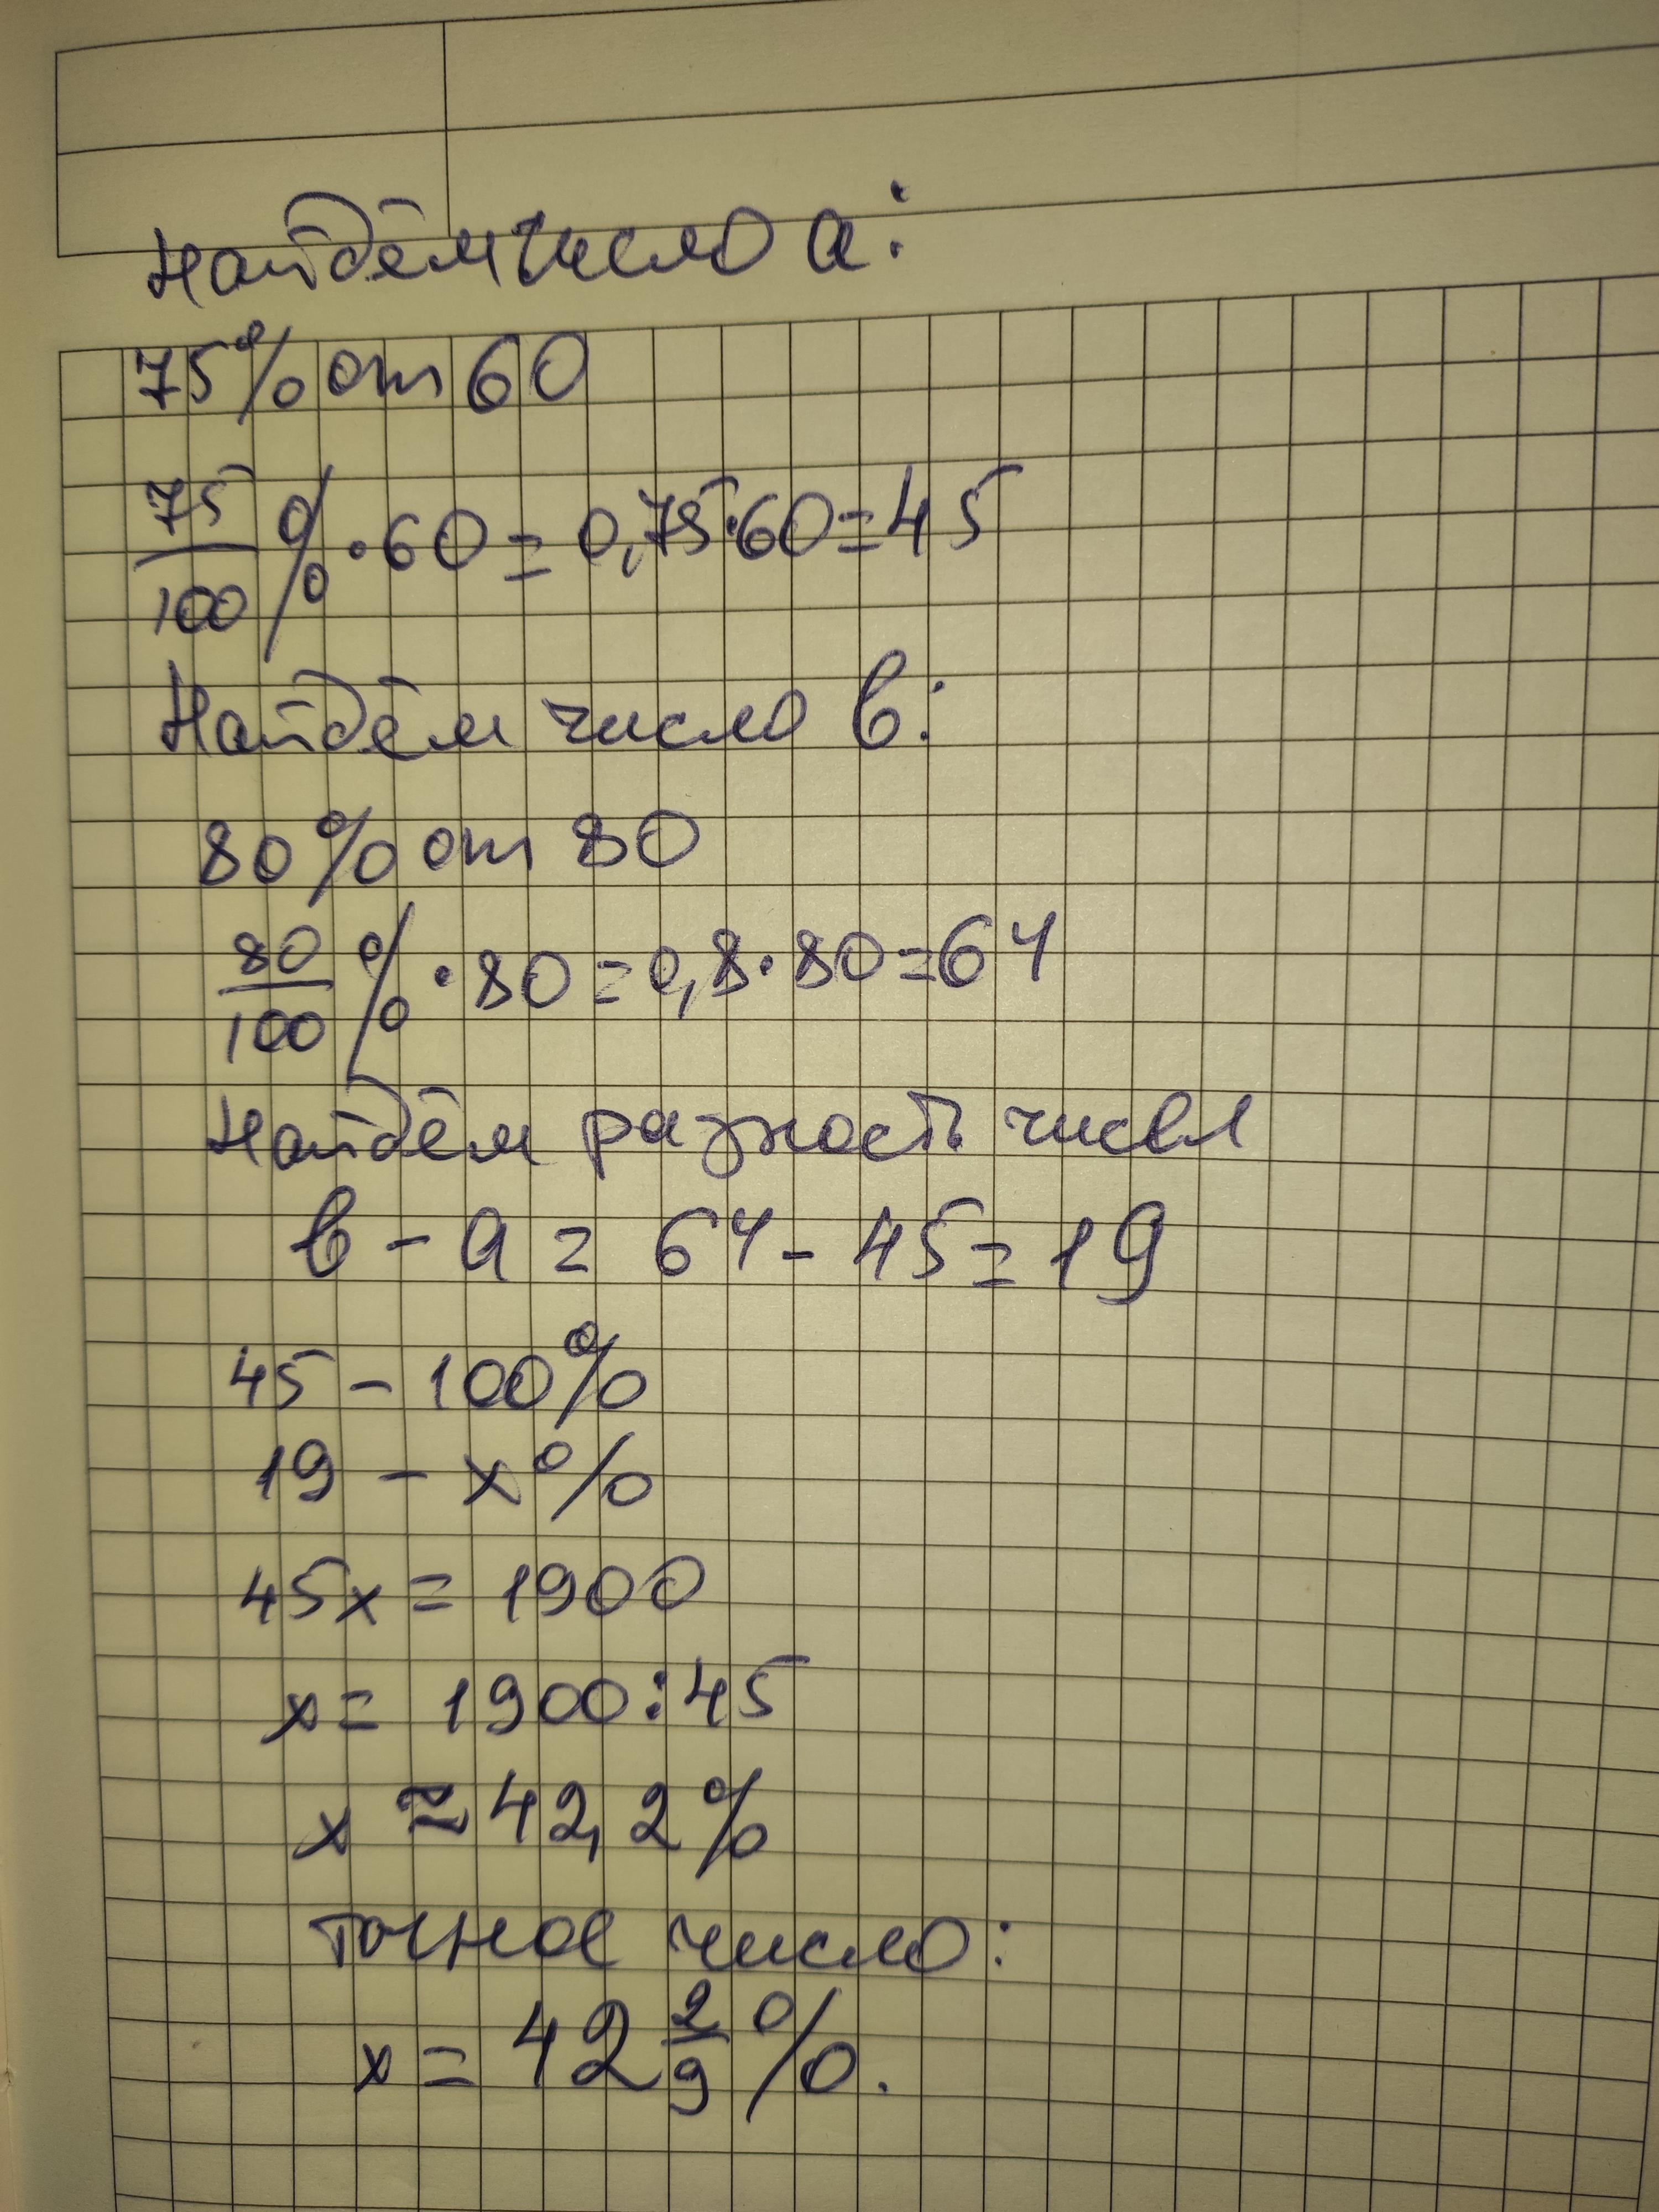 Найдём число а:
75% от 60
75/100 % · 60 = 0,75 · 60 = 45
Найдём число в:
80% от 80
80/100 % · 80 = 0,8 · 80 = 64
Найдём разность чисел
в - а = 64 - 45 = 19
45 - 100%
19 - х%
45х = 1900
х = 1900 : 45
х ≈ 42,2%
точное число:
х = 42 2/9 %.